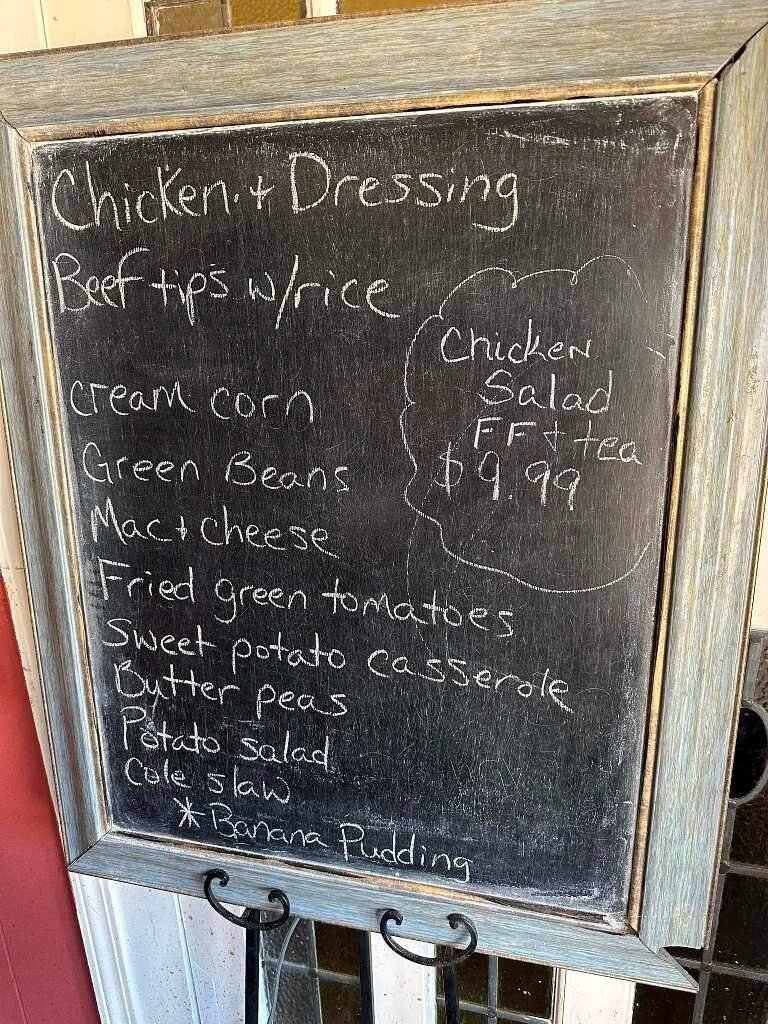 Chicken + Dressing
Beef tips w/rice
Chicken
Salad
FF + tea
$9.99
cream corn
Green Beans
Mac + cheese
Fried green tomatoes
Sweet potato casserole
Butter peas
Potato salad
Cole slaw
* Banana Pudding